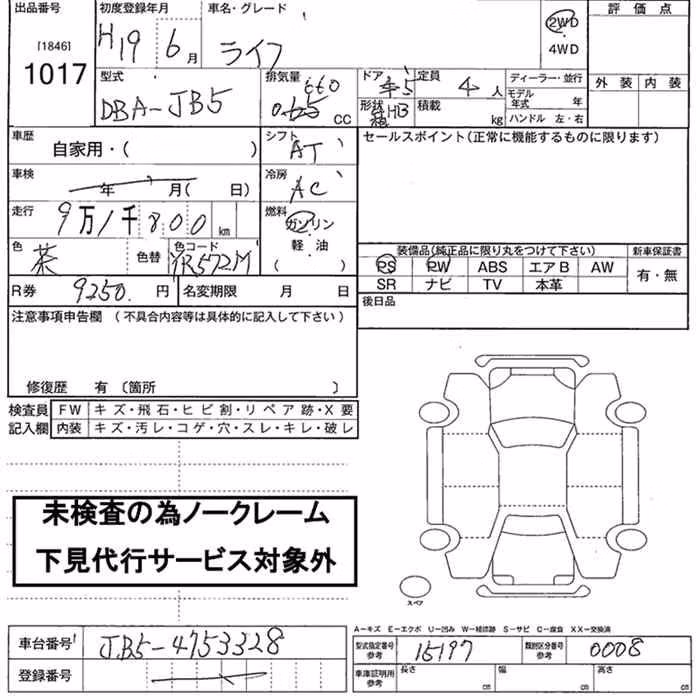 出品番号 初度登録年月 車名・グレード 評価点
[1846] H19 6月 ライフ 2WD
1017 4WD
型式 排気量 660 ドア 定員 ディーラー・並行 外装 内装
DBA-JB5 0.65 CC 5 4人 モデル年式 年
形状 HB 積載 kg ハンドル 左・右
車歴 自家用・( ) シフト AT セールスポイント(正常に機能するものに限ります)
車検 年 月( 日) 冷房 AC
走行 9万1千800km 燃料 ガソリン
軽・油
( )
色 茶 色替 色コード YR572M 装備品(純正品に限り丸をつけて下さい) 新車保証書
PS PW ABS エアB AW 有・無
SR ナビ TV 本革
R券 9250円 名変期限 月 日 後日品
注意事項申告欄 (不具合内容等は具体的に記入して下さい)
修復歴 有 〔箇所 〕
検査員 FW キズ・飛石・ヒビ割・リペア跡・X要
記入欄 内装 キズ・汚レ・コゲ・穴・スレ・キレ・破レ
未検査の為ノークレーム
下見代行サービス対象外
スペア
A−キズ E−エクボ U−凹み W−補修跡 S−サビ C−腐食 XX−交換済
車台番号 JB5-4753328 型式指定番号 参考 15197 類別区分番号 参考 0008
登録番号 車庫証明用 参考 長さ cm 幅 cm 高さ cm